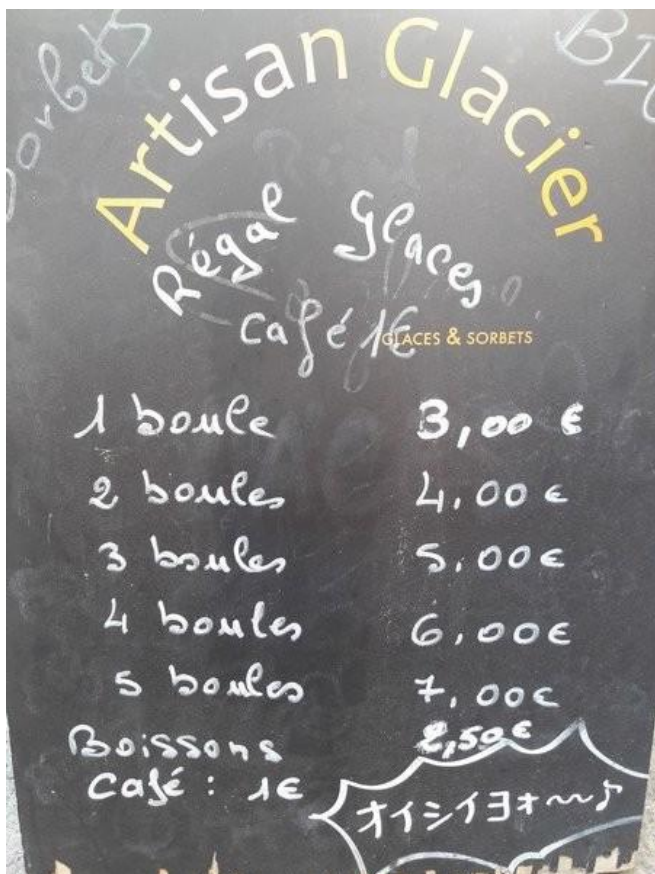 Sorbets
Artisan Glacier
Régal Glaces
Café 1€
GLACES & SORBETS
1 boule 3,00 €
2 boules 4,00 €
3 boules 5,00 €
4 boules 6,00 €
5 boules 7,00 €
Boissons 2,50 €
Café : 1€
オイシイヨォ〜〜♪